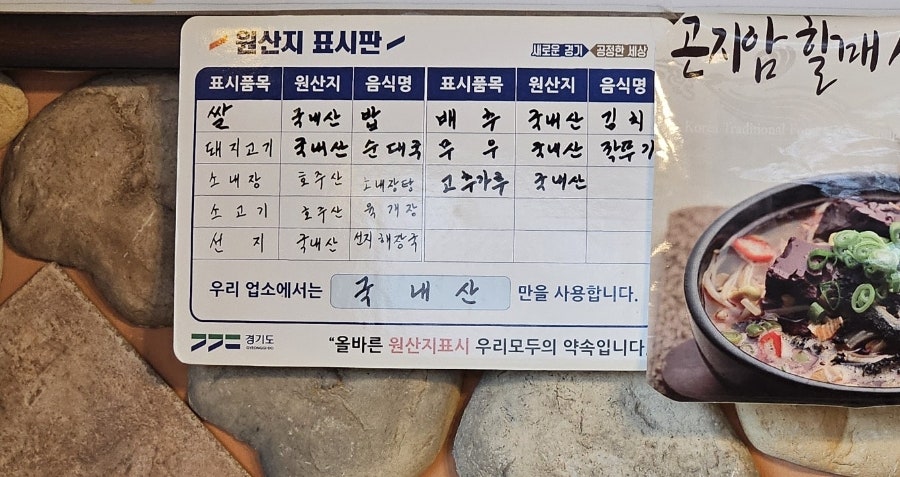 원산지 표시판
새로운 경기 공정한 세상
표시품목 원산지 음식명 표시품목 원산지 음식명
쌀 국내산 밥 배추 국내산 김치
돼지고기 국내산 순대국 무우 국내산 깍뚜기
소내장 호주산 소내장탕 고추가루 국내산
소고기 호주산 육개장
선지 국내산 선지해장국
우리 업소에서는 국내산 만을 사용합니다.
경기도
GYEONGGI-DO
"올바른 원산지표시 우리모두의 약속입니다.
곤지암 할매
Korea Traditional